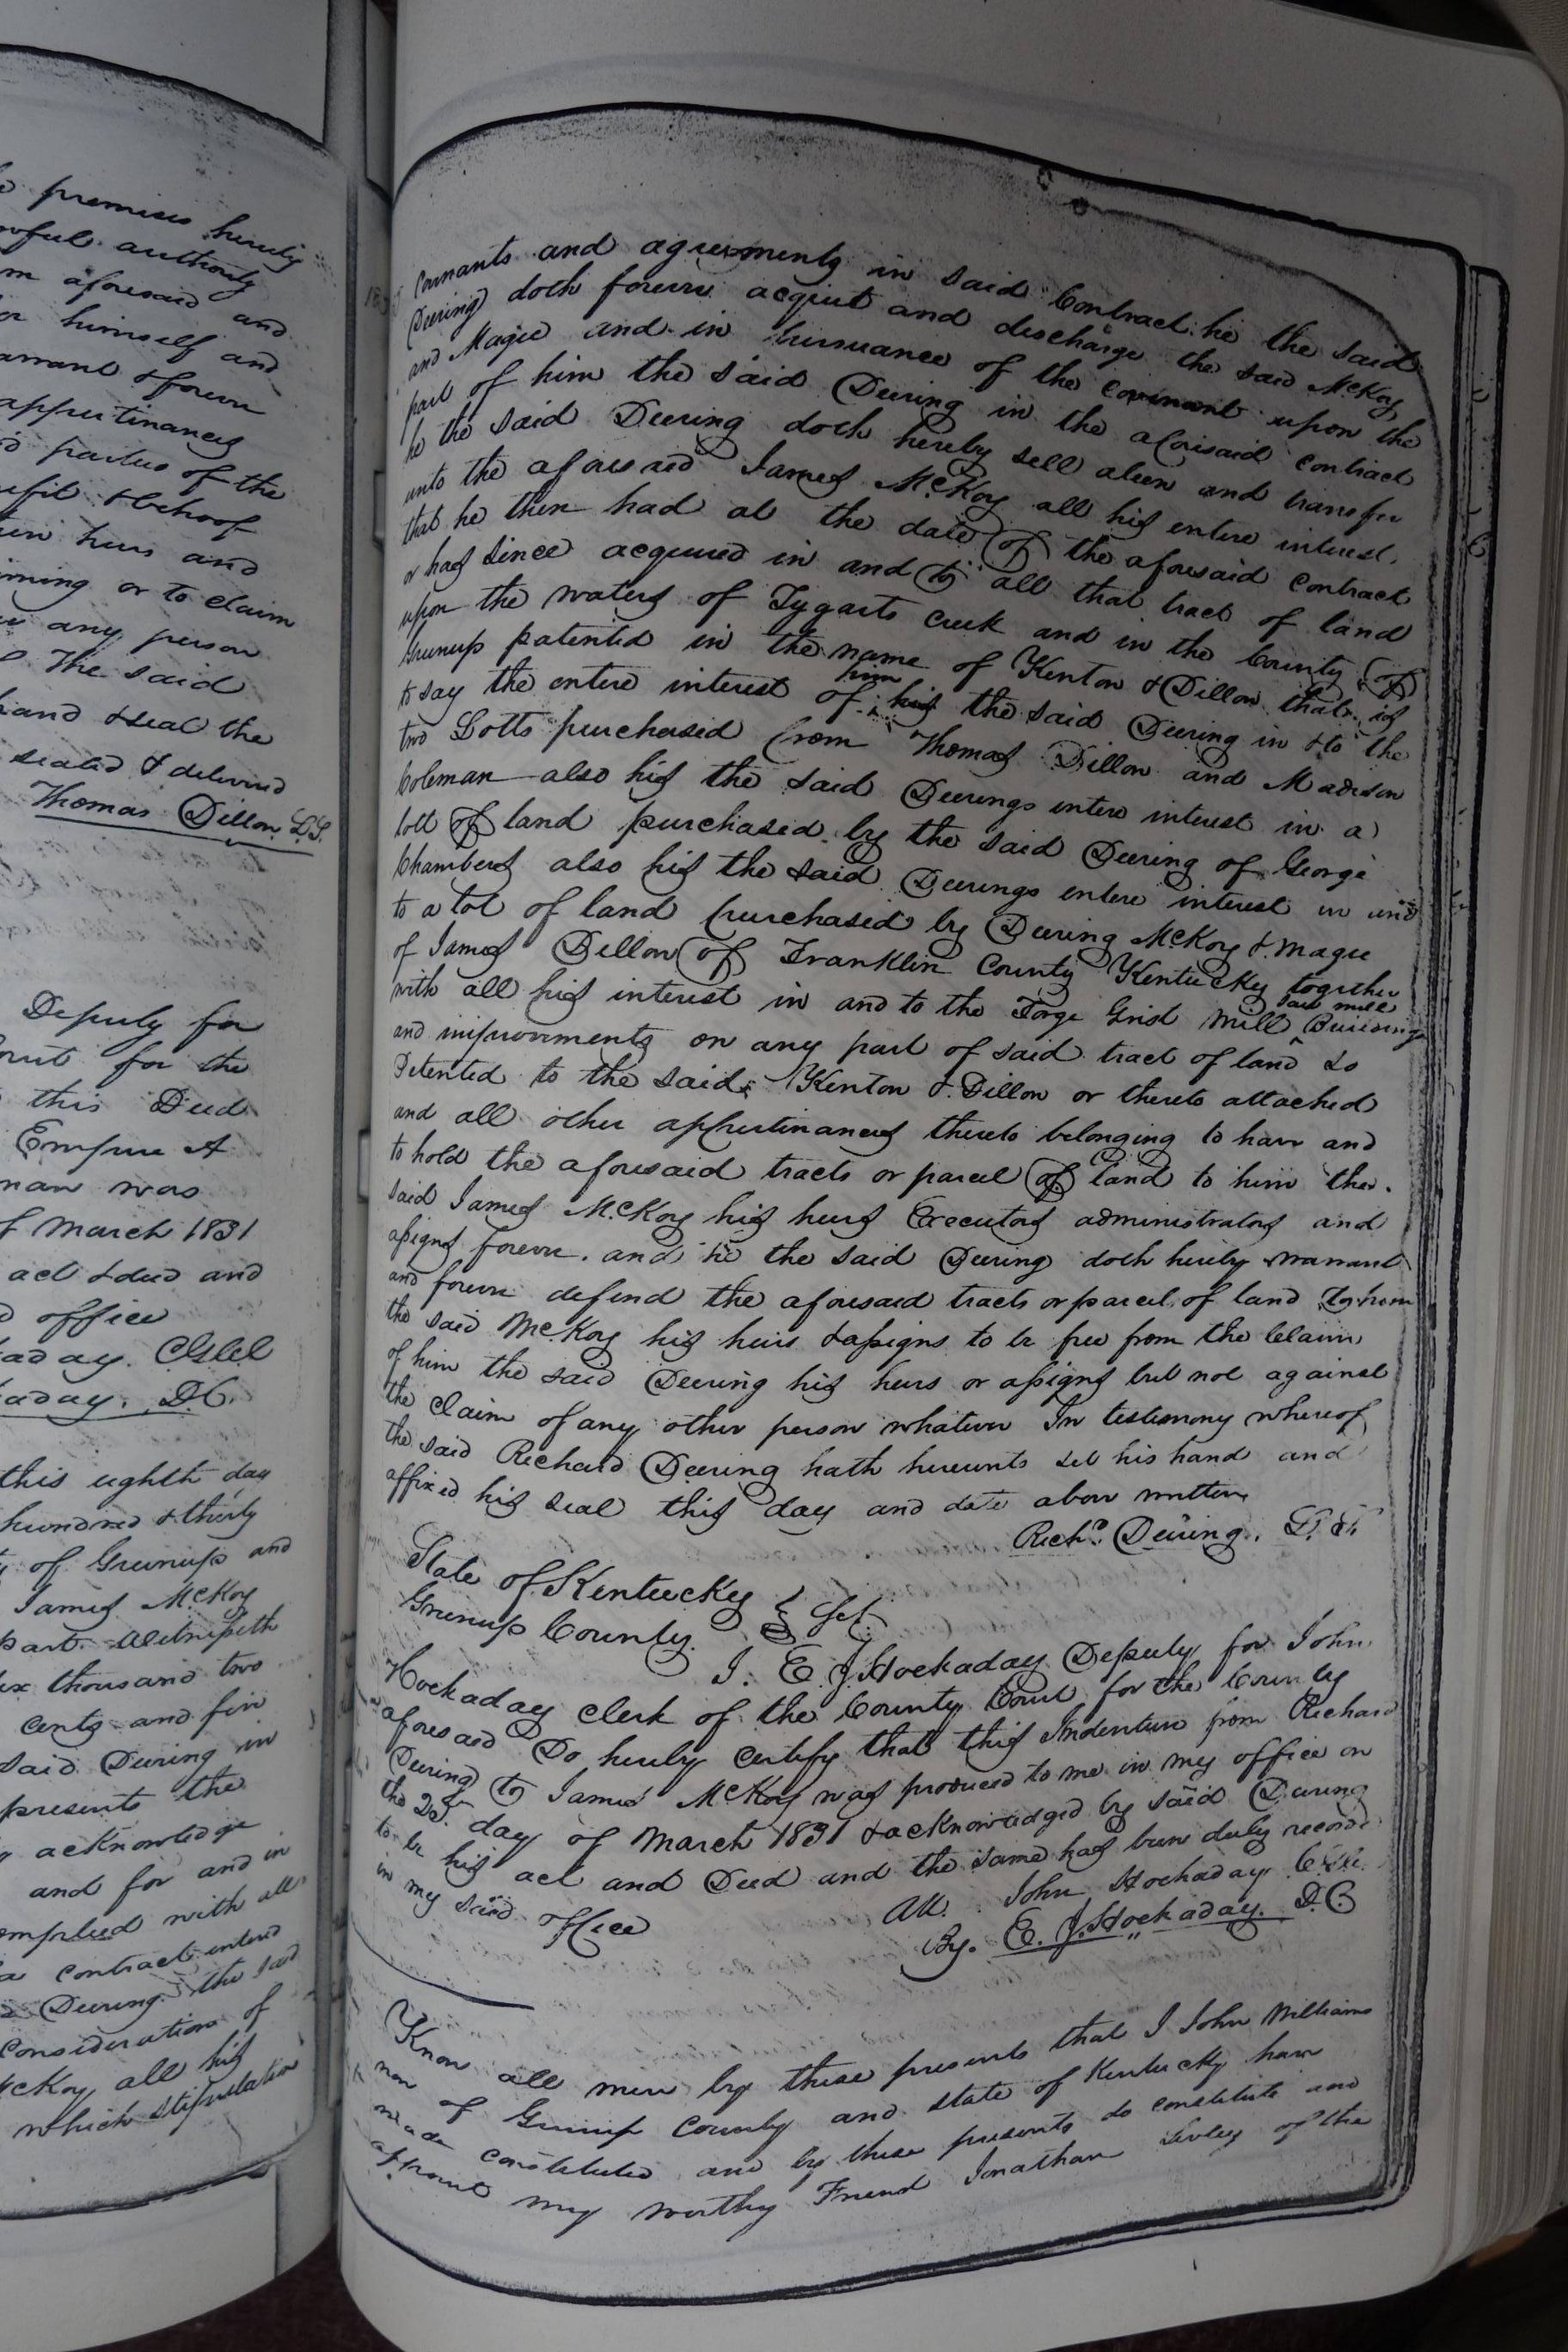 premises hereby
authority
aforesaid and
himself and
forever
appurtinances
parties of the
&behoof
heirs and
or to claim
any person
The said
hand &seal the
sealed & delivered
Thomas Dillon L.S.
Deputy for
for the
this Deed
Empire A
was
of March 1831
act &deed and
office
D.C.
this eighth day
hundred &thirty
of Greenup and
James McKoy
part. Witnesseth
thousand two
cents and five
said Deering in
presents the
acknowledge
and for and in
with all
a contract entered
Deering the said
Consideration of
McKoy all his
which stipulation
covnants and agreements in said Contract he the said
Deering doth forever acquit and discharge the said McKoy
and Magee and in pursuance of the covenant upon the
part of him the said Deering in the aforisaid contract
he the said Deering doth hereby sell alien and transfer
unto the aforesaid James McKoy all his entire interest
that he then had at the date of the aforesaid contract
or has since acquired in and to all that tract of land
upon the waters of Tygarts creek and in the County of
Greenup patented in the name of Kenton & Dillon that is
to say the entire interest of him his the said Deering in &to the
two Lotts purchased from Thomas Dillon and Madison
Coleman also his the said Deerings entere interest in a
lott of land purchased by the said Deering of George
Chambers also his the said Deerings entere interest in and
to a lot of land purchased by Deering McKoy & Magee
of James Dillon of Franklin County Kentucky together
with all his interest in and to the Forge Grist Mill saw mill Buildings
and improvments on any part of said tract of land so
Petented to the said Kenton & Dillon or thereto attached
and all other appurtinances thereto belonging to have and
to hold the aforesaid tracts or parcel of land to him the
said James McKoy his heirs Executors administrators and
assigns forever. and he the said Deering doth hereby warrant
and forever defend the aforesaid tracts or parcel of land to him
the said McKoy his heirs &assigns to be free from the Claim
of him the said Deering his heirs or assigns but not against
the claim of any other person whatever In testimony whereof
the said Richard Deering hath hereunto set his hand and
affixed his seal this day and date above written
Richd. Deering. L.S.
State of Kentucky } Sct.
Greenup County.
I. E. J. Hockaday Deputy for John
Hockaday clerk of the County Court for the County
aforesaid Do hereby certify that this Indenture from Richard
Deering to James McKoy was produced to me in my office on
the day of March 1831 &acknowledged by said Deering
to be his act and Deed and the same has been duly recorded
in my said office
Att. John Hockaday
By. E. J. Hockaday. D.C.
Know all men by these presents that I John Williams
now of Greenup County and state of Kentucky have
made constituted and by these presents do constitute and
appoint my worthy Friend Jonathan of the